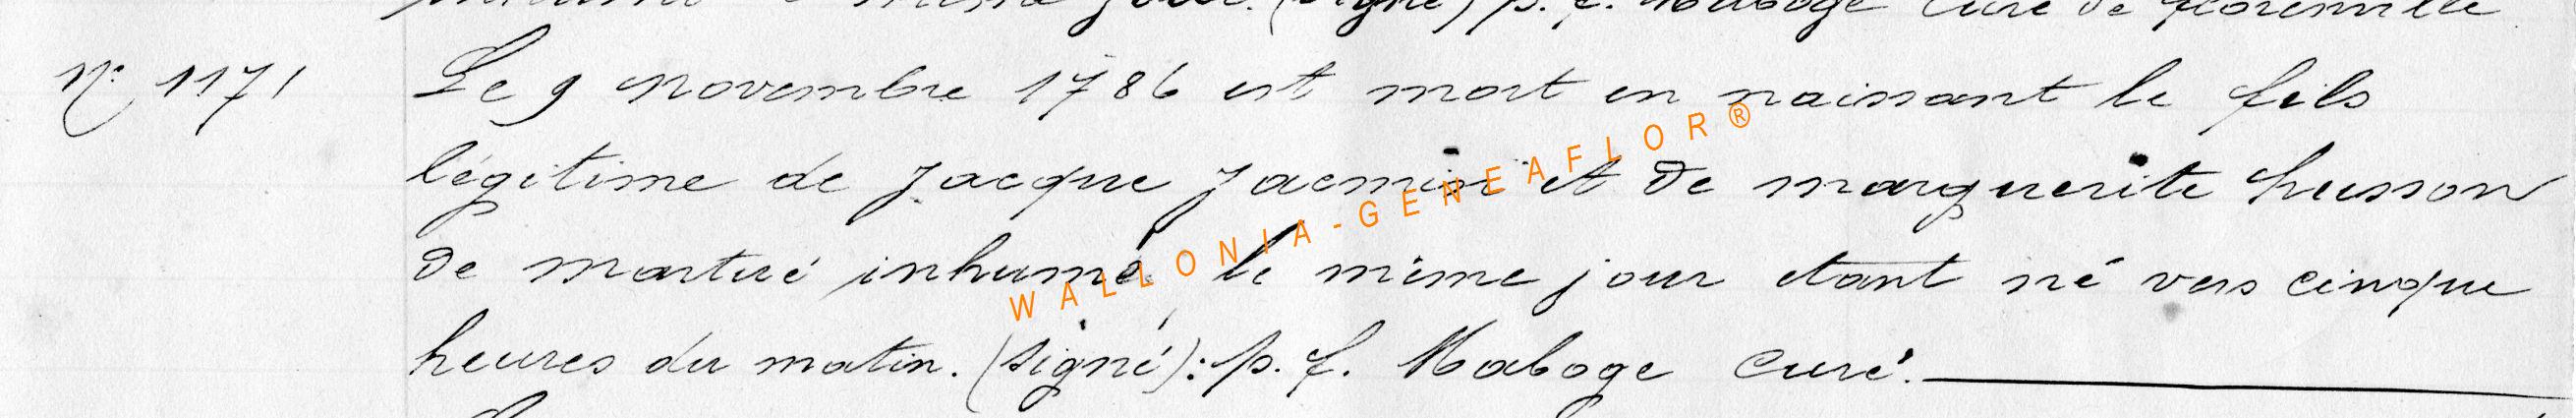 (signé) p. f. Maboge curé de florenville
N° 1171 Le 9 novembre 1786 est mort en naissant le fils
légitime de Jacque Jacmin et de marguerite husson
de martué inhumé le même jour etant né vers cinque
heures du matin. (signé): p. f. Maboge Curé.
WALLONIA-GENEAFLOR®